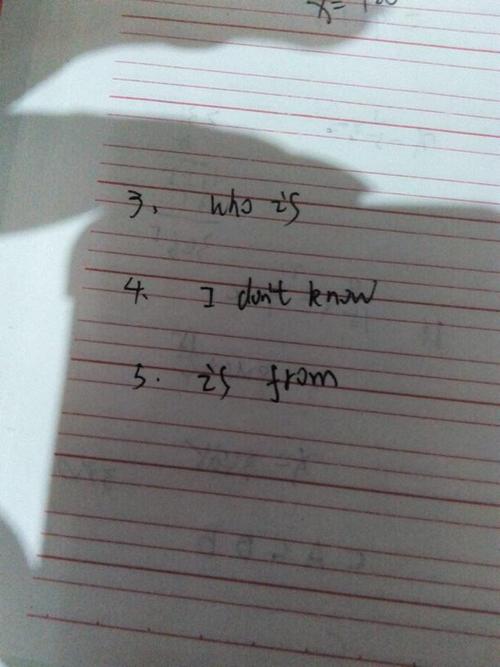 x=
3. who is
4. I don't know
5. is from